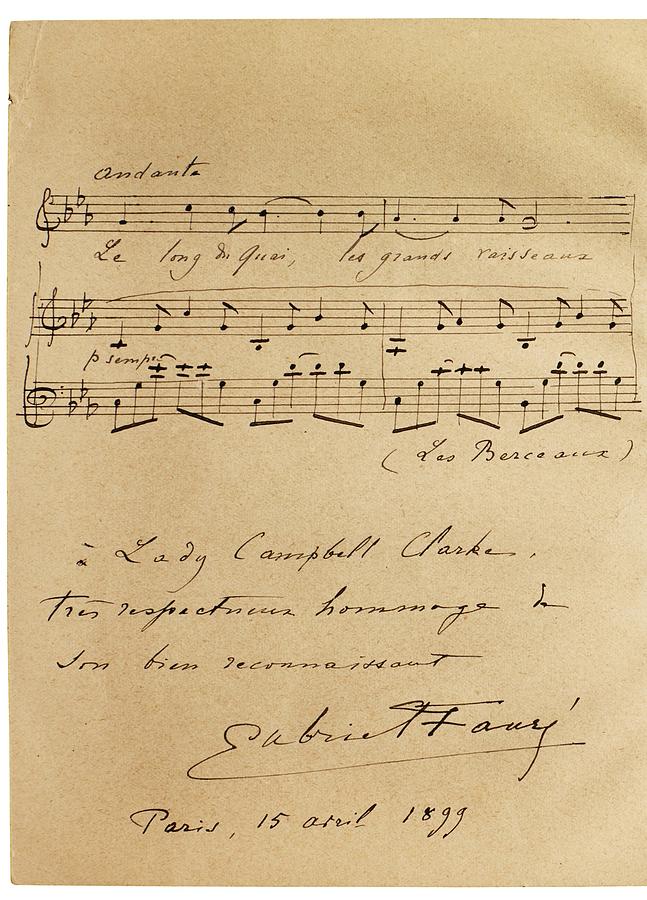 Andante
Le long du Quai, les grands vaisseaux
p sempre
(Les Berceaux)
à Lady Campbell Clarke.
très respectueux hommage de
son bien reconnaissant
Gabriel Fauré
Paris, 15 avril 1899